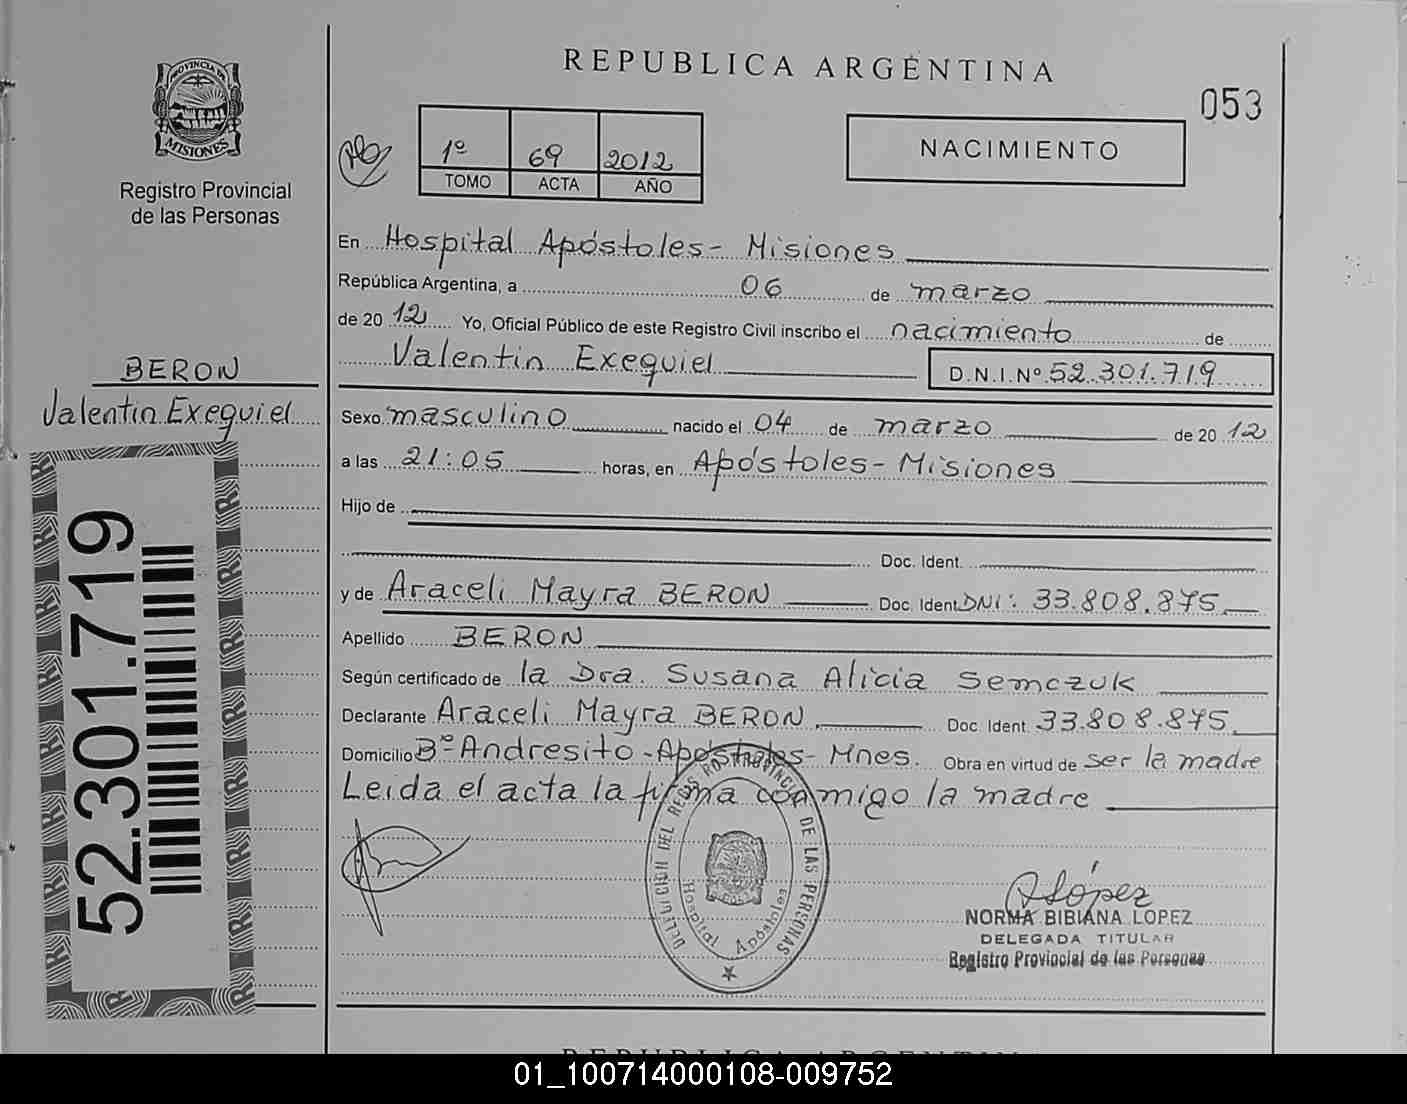 REPUBLICA ARGENTINA
053
PROVINCIA DE
MISIONES
Registro Provincial
de las Personas
1º 69 2012
TOMO ACTA AÑO
NACIMIENTO
En Hospital Apóstoles - Misiones
República Argentina, a 06 de marzo
de 20 12 Yo, Oficial Público de este Registro Civil inscribo el nacimiento de
Valentin Exequiel D.N.I.Nº 52.301.719
BERON
Valentin Exequiel
52.301.719
Sexo masculino nacido el 04 de marzo de 20 12
a las 21:05 horas, en Apóstoles - Misiones
Hijo de
Doc. Ident.
y de Araceli Mayra BERON Doc. Ident. DNI: 33.808.875
Apellido BERON
Según certificado de la Dra. Susana Alicia Semczuk
Declarante Araceli Mayra BERON Doc. Ident. 33.808.875
Domicilio Bº Andresito - Apóstoles - Mnes. Obra en virtud de ser la madre
Leida el acta la firma conmigo la madre
DE LAS PERSONAS
Hospital Apóstoles
NORMA BIBIANA LOPEZ
DELEGADA TITULAR
Registro Provincial de las Personas
REPUBLICA ARGENTINA
01_100714000108-009752